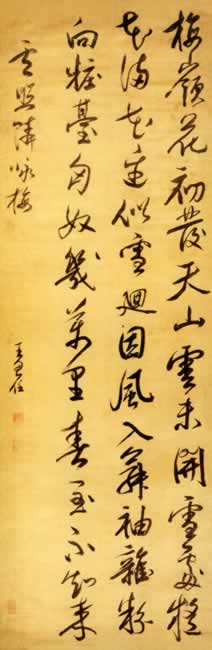 梅嶺花初發天山雪未開雪處疑
花滿花邊似雪廻因風入舞袖雜粉
向粧臺匈奴幾萬里春至不知來
盧照隣詠梅
王思任